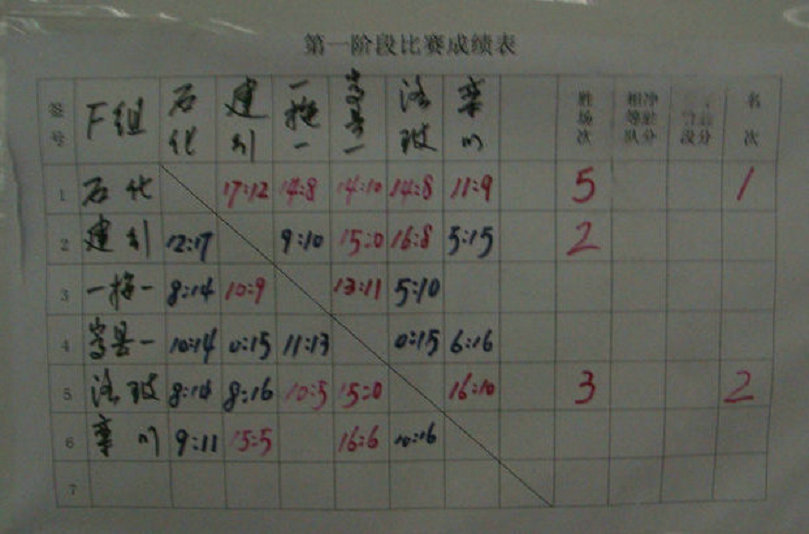 第一阶段比赛成绩表
签号 F组 石化 建引 一拖一 嵩县一 洛玻 栾川 胜场次 相等队 净胜分 段分 名次
1 石化 17:12 14:8 14:10 14:8 11:9 5 1
2 建引 12:17 9:10 15:0 16:8 5:15 2
3 一拖一 8:14 10:9 13:11 5:10
4 嵩县一 10:14 0:15 11:13 0:15 6:16
5 洛玻 8:14 8:16 10:5 15:0 16:10 3 2
6 栾川 9:11 15:5 16:6 10:16
7